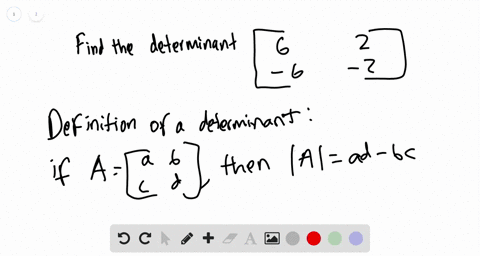 Find the determinant [6 2
-6 -2]
Definition of a determinant:
if A = [a b
c d], then |A| = ad - bc